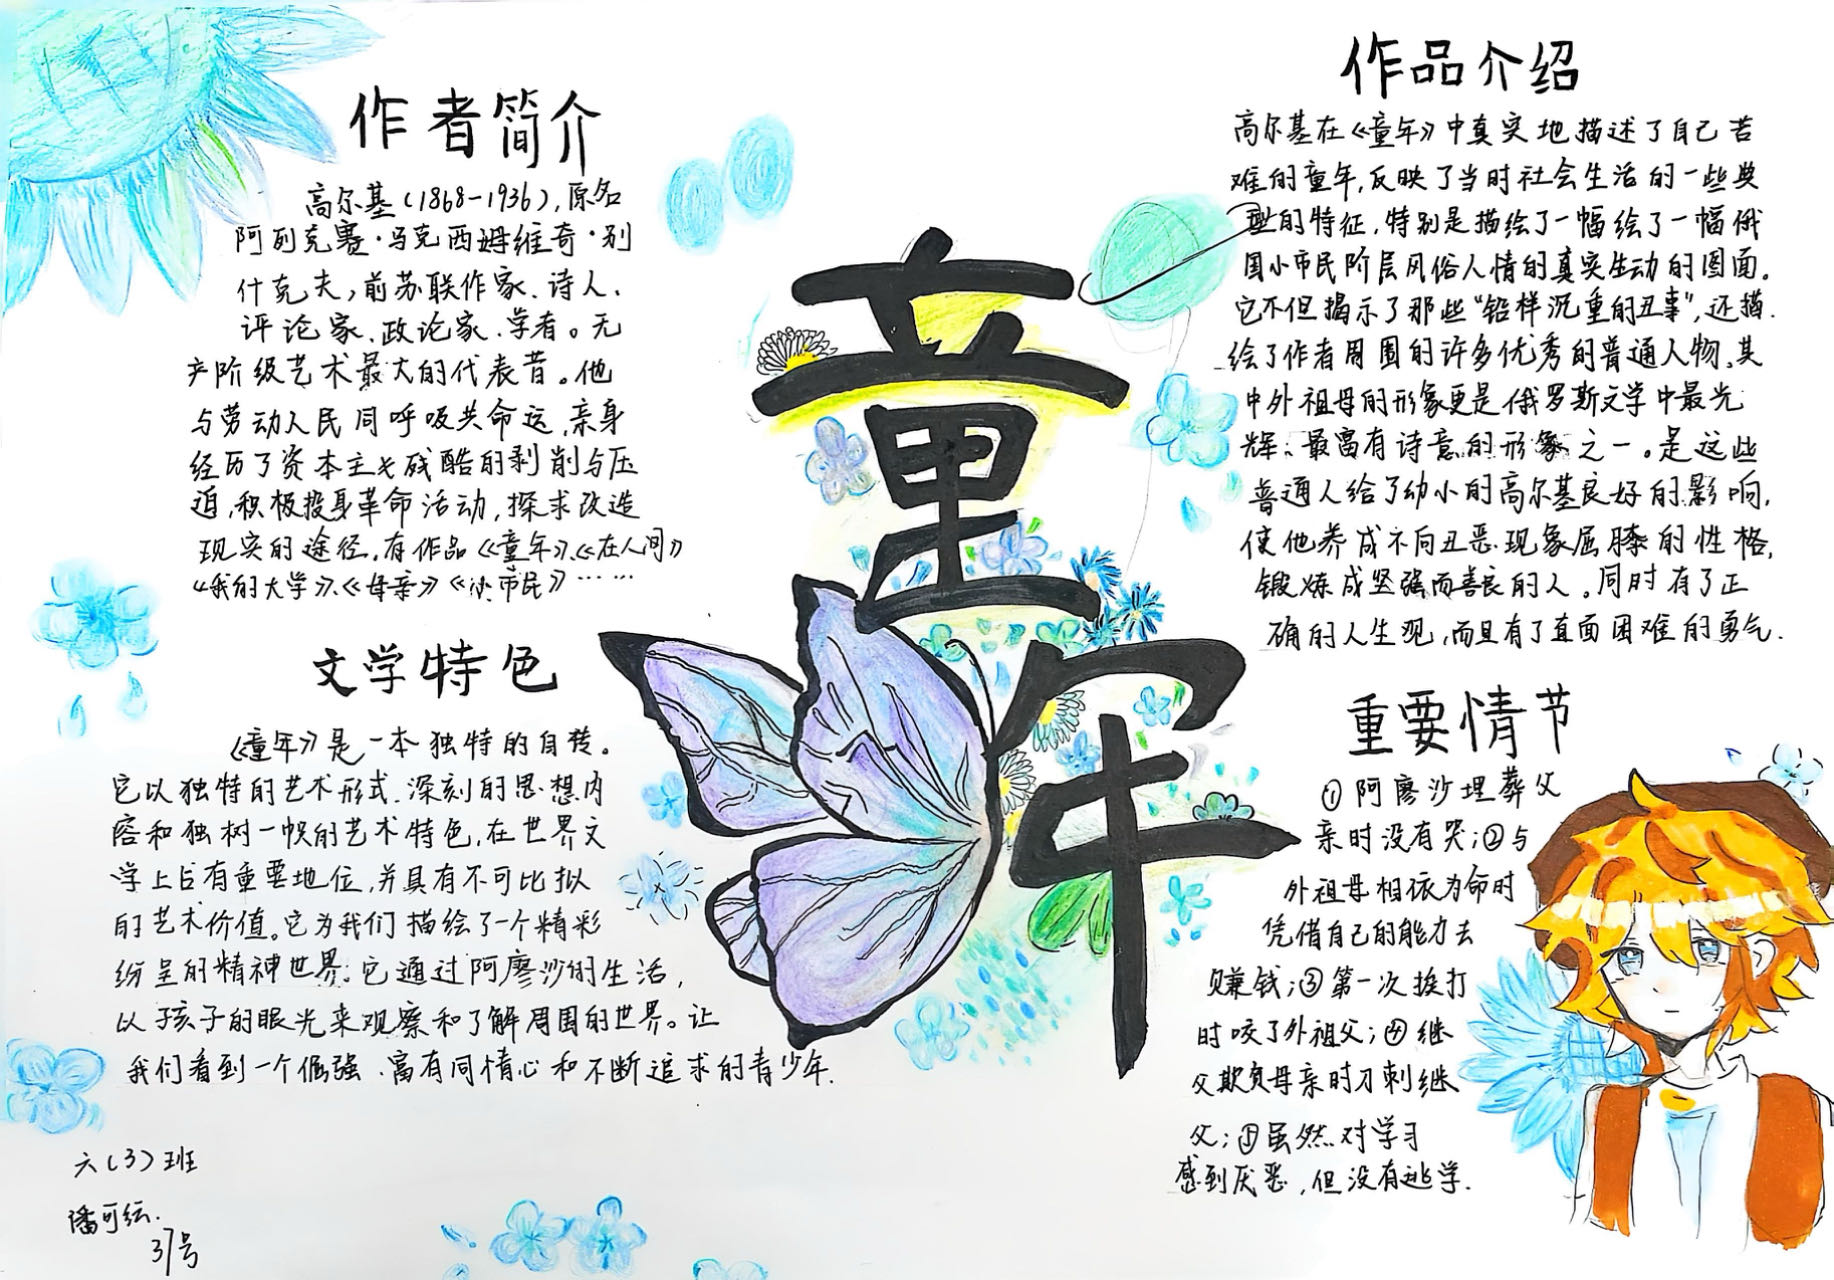 作者简介
高尔基(1868-1936),原名
阿列克赛·马克西姆维奇·别
什克夫,前苏联作家、诗人、
评论家、政论家、学者。无
产阶级艺术最大的代表昔。他
与劳动人民同呼吸共命运,亲身
经历了资本主义残酷的剥削与压
迫,积极投身革命活动,探求改造
现实的途径。有作品《童年》《在人间》
《我的大学》、《母亲》《小市民》……
文学特色
《童年》是一本独特的自传。
它以独特的艺术形式、深刻的思想内
容和独树一帜的艺术特色,在世界文
学上占有重要地位,并具有不可比拟
的艺术价值。它为我们描绘了一个精彩
纷呈的精神世界。它通过阿廖沙的生活,
以孩子的眼光来观察和了解周围的世界。让
我们看到一个倔强、富有同情心和不断追求的青少年.
六(3)班
潘可纭.
37号
童年
作品介绍
高尔基在《童年》中真实地描述了自己苦
难的童年,反映了当时社会生活的一些典
型的特征,特别是描绘了一幅绘了一幅俄
国小市民阶层风俗人情的真实生动的图面。
它不但揭示了那些“铅样沉重的丑事”,还描
绘了作者周围的许多优秀的普通人物、其
中外祖母的形象更是俄罗斯文学中最光
辉、最富有诗意的形象之一。是这些
普通人给了幼小的高尔基良好的影响,
使他养成不向丑恶现象屈膝的性格,
锻炼成坚强而善良的人。同时有了正
确的人生观,而且有了直面困难的勇气.
重要情节
①阿廖沙埋葬父
亲时没有哭;②与
外祖母相依为命时
凭借自己的能力去
赚钱;③第一次挨打
时咬了外祖父;④继
父欺负母亲时刀刺继
父;⑤虽然对学习
感到厌恶,但没有逃学.